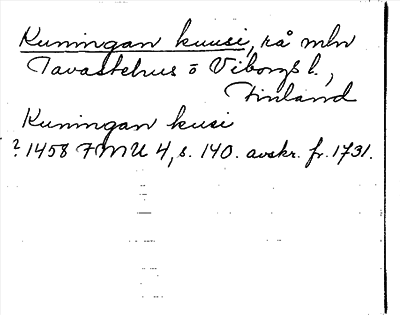 Kuningan kuusi, rå mln
Tavastehus o Viborgs l.,
Finland
Kuningan kusi
? 1458 FMU 4, s. 140. avskr. fr. 1731.